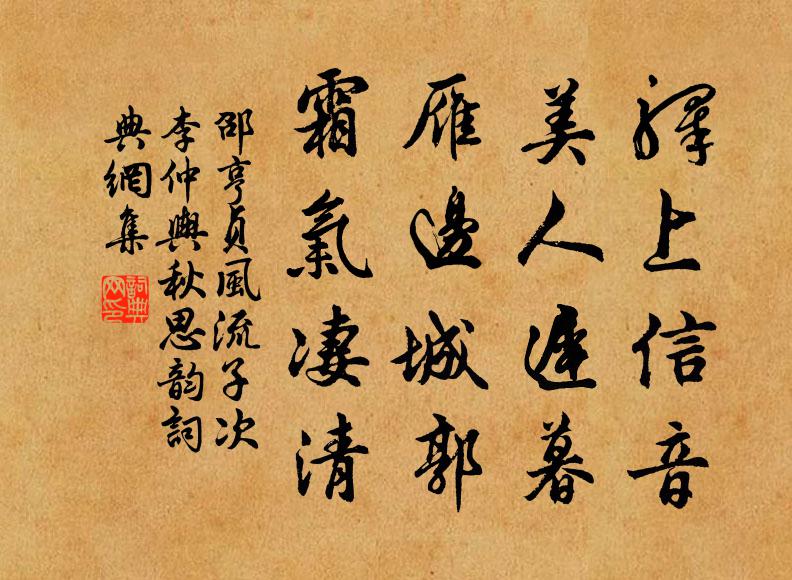 驛上信音
美人遲暮
雁邊城郭
霜氣凄清
邵亨貞風流子次
李仲輿秋思韵詞
典網集
詞典
网印